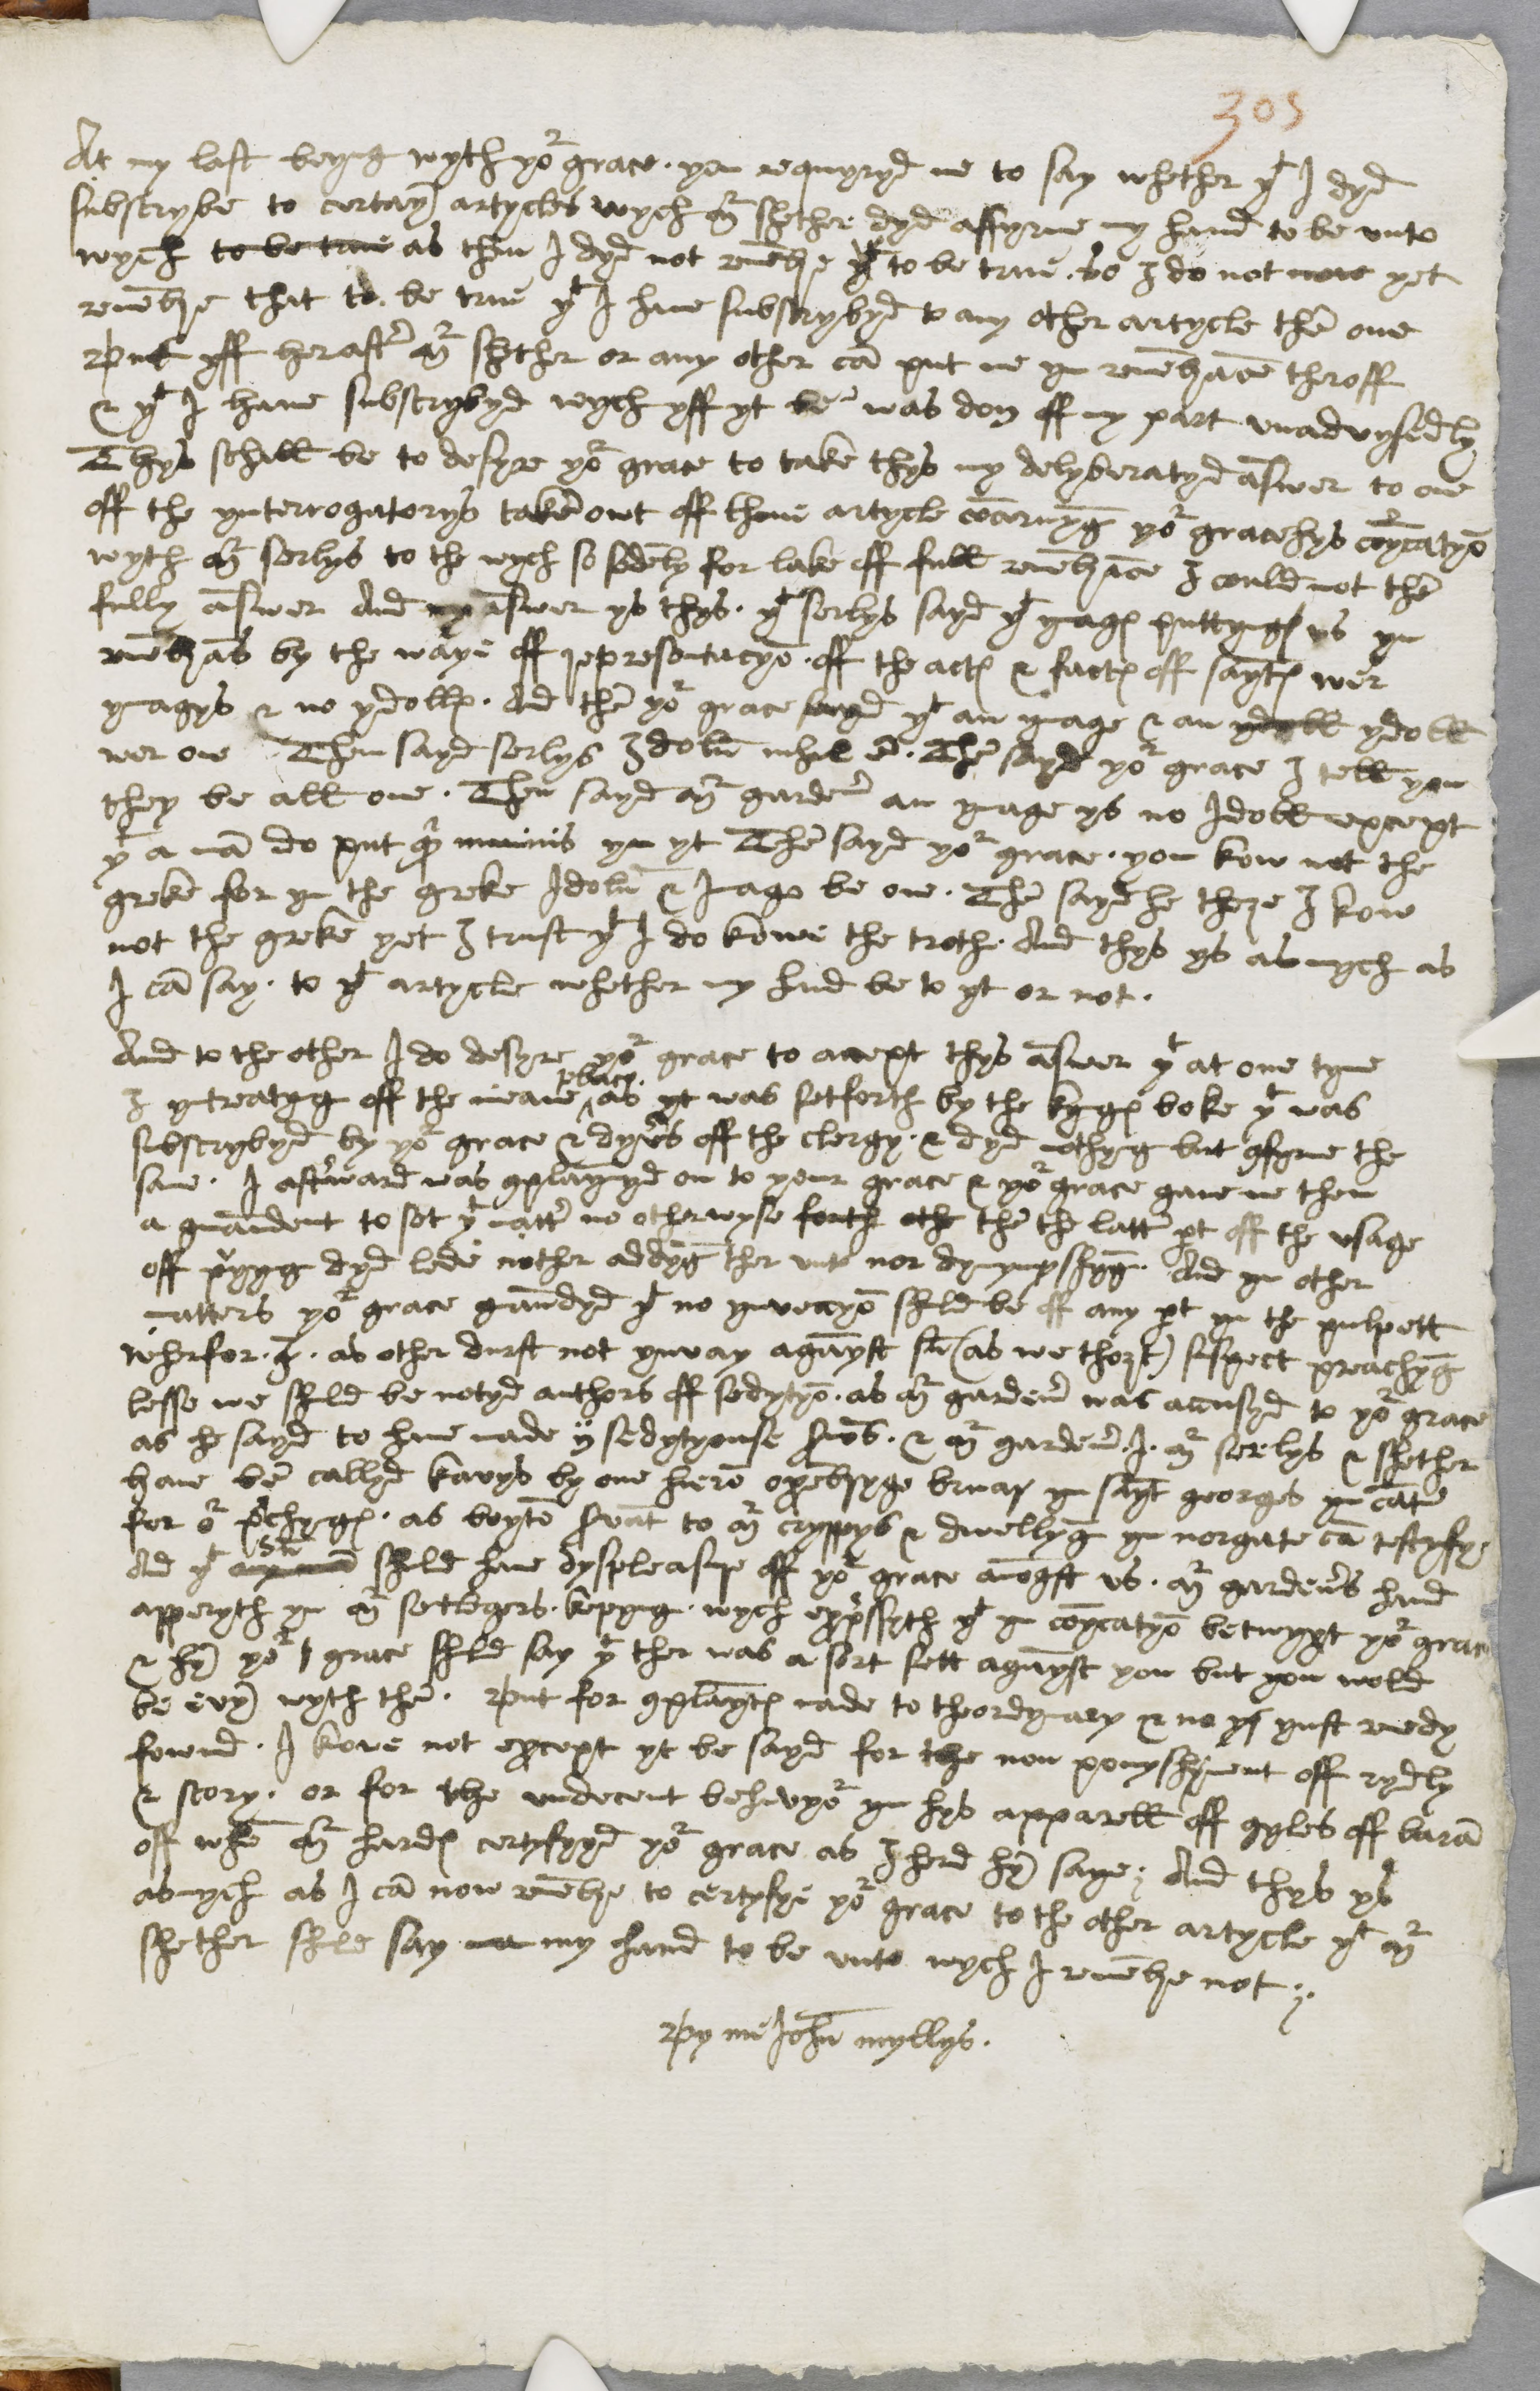 305
At my last beyng wyth yor grace. you requyryd me to say whether yt I dyd
subscrybe to certayn artycles wych mr shether dyd affyrme my hand to be unto
wych to be true as then I dyd not remēbre yt to be true. so I do not now yet
remēbre that to be true yt I have subscrybyd to any other artycle thē one
But yff heraftr mr shether or any other cā put me yn remēbrāce theroff
& yt I have subscrybyd wych yff yt be was don off my part unadvysedly
Thys schall be to desyre yor grace to take thys my delyberatyd āswer to one
off the ynterrogatorys takē owt off thone artycle cōcernyng yor grace hys cōycatyō
wyth mr serlys to the wych so sodēly for lake off full remēbrāce I could not thē
fully āswer And my āswer ys thys. yt serlys sayd yt ymages puttyng us yn
remēbrās by the waye off representacyō. off the actes & factes off sayntes wer
ymagys & no ydolles. Ad thē yor grace sayd yt an ymage & an ydoll ydoll
wer one Then sayd serlys Idolū nihil ē. Thē sayd yor grace I tell you
they be all one. Then sayd mr gardenr an ymage ys no Idoll except
yt a mā do put numinis yn yt Thē sayd yor grace. you know not the
greke for yn the greke Idolū & Imago be one. Thē sayd he thoze I know
not the greke yet I trust yt I do knowe the troth. And thys ys as mych as
I cā say. to yt artycle whether my hand be to yt or not.
And to the other I do desyre yor grace to accept thys āswer yt at one tyme
I yntreatyng off the meane places as yt was set forth by the kynges boke yt was
subscrybyd by yor grace & dyvers off the clergy. & dyd nothyng but cōfyrme the
same. I aftrward was cōplaynyd on to your grace & yor grace gave me then
a cōmādment to set yt mattr no otherwyse forth othe thē the lattr pt off the usage
off prayyng dyd lede nother addyng ther unto nor dymynyshyng. And yn other
matters yor grace cōmādyd yt no ynvecyō shuld be off any pt yn the pulpett
wherfor. I. as other durst not ynvay agaynst sū (as we thozt) suspect preachyng
lesse we shuld be notyd authors off sedytyō. as mr gardenr was accusyd to yor grace
as he sayd to have made ij sedytyouse srmōs. & mr gardenr. I. mr serlys & shether
have bē callyd knavys by one hierō oxebryge bruar yn saynt georges yn cāt
for or prechynges. as boytō srvāt to mr cryppys & dwellyng yn norgate cā testyfy.
Ad yt any man sū shuld have dyspleasure off yor grace amōgst us. mr gardenrs hand
apperyth yn mr sentlegers. kepyng. wych expressyth yt yn cōycatyō betwyxt yor grace
& hym yor grace shuld say yt ther was a sort sett agaynst you but you wold
be evyn wyth thē. But for cōplayntes made to thordynary & no ynst remedy
fownd. I know not except yt be sayd for the non ponyshment off rydly
& scory. or for the undecent behavyor yn hys apparell off gyles off barā
off whō mr hardes certyfyyd yor grace as I herd hym saye; And thys ys
as mych as I cā now remēbre to certyfye yor grace to the other artycle yt mr
shether shuld say my hand to be unto wych I remēbre not;.
By me Johñ myllys.